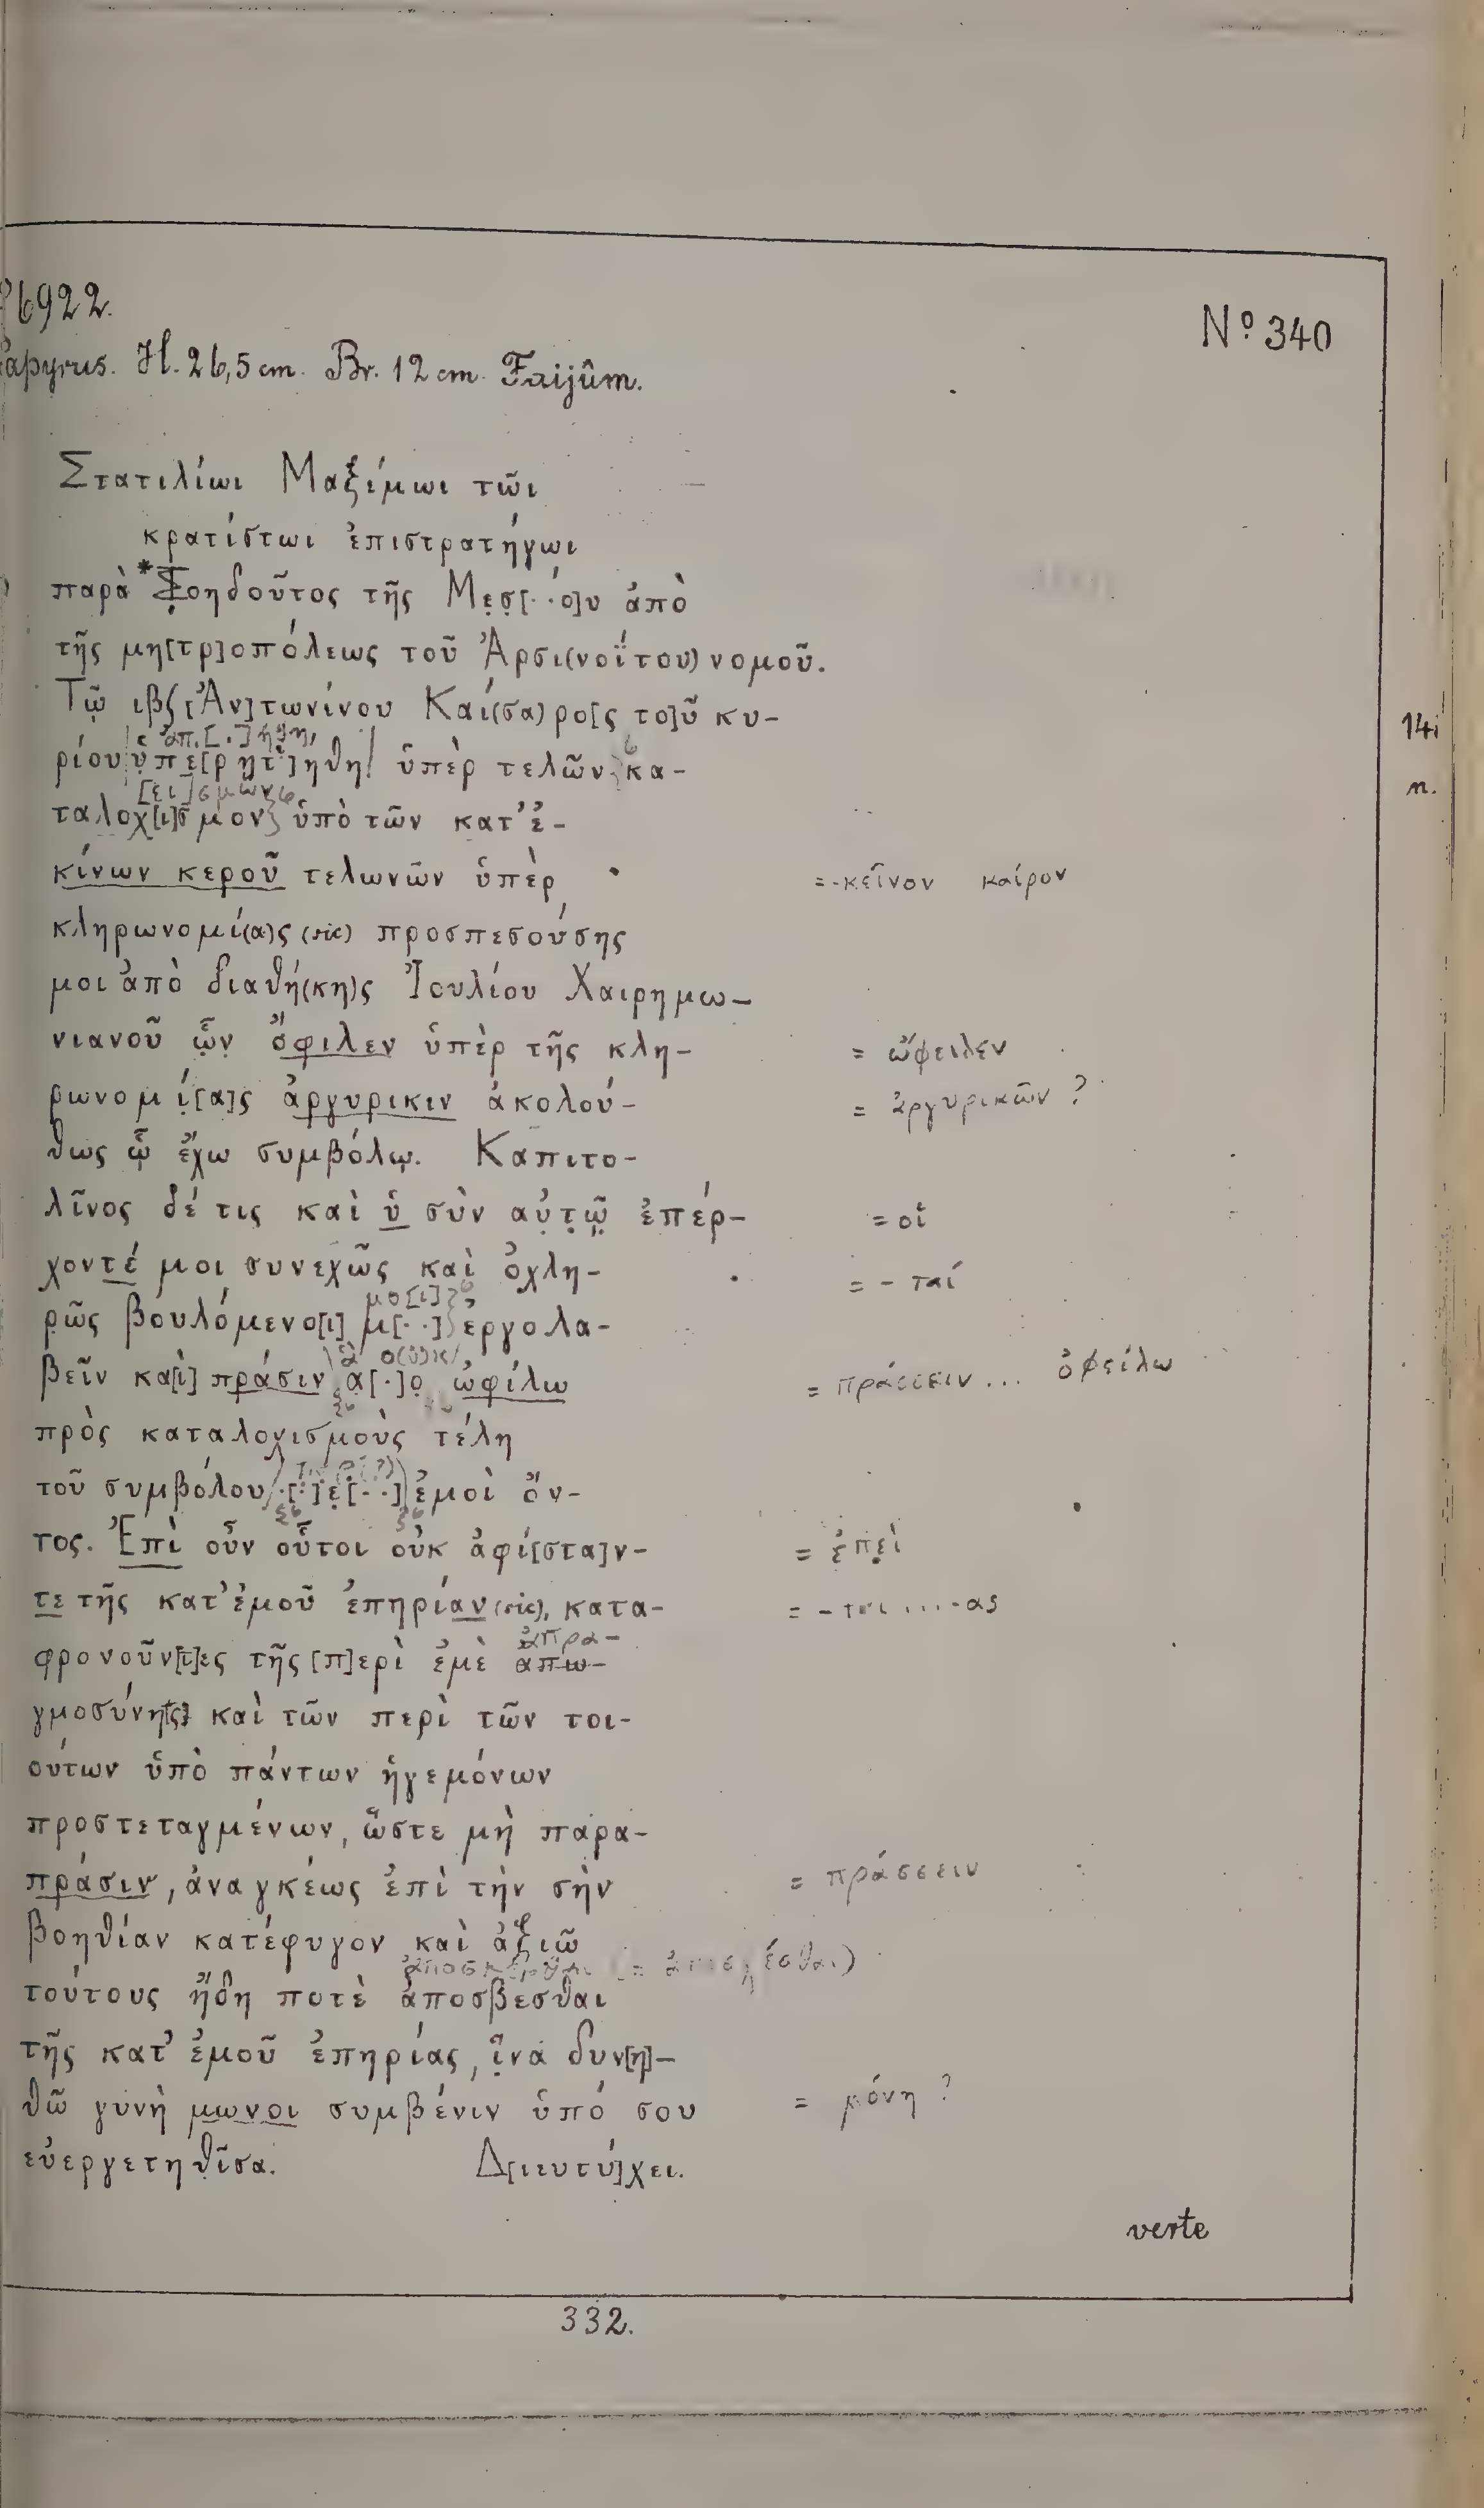 P6922.
Papyrus. H. 26,5 cm. Br. 12 cm. Faijûm.
Nº 340
Στατιλίωι Μαξίμωι τῶι
κρατίστωι ἐπιστρατήγωι
παρὰ * Σοηδοῦτος τῆς Μεσ[··ο]υ ἀπὸ
τῆς μη[τρ]οπόλεως τοῦ Ἀρσι(νοΐτου) νομοῦ.
Τῷ ιβʃ [Ἀν]τωνίνου Καί(σα)ρο[ς το]ῦ κυ-
ρίου ὑπε[ρ ητ·]ηθη ὑπὲρ τελῶν κα-
[ει]σμῶν
ταλοχ[ι]σμον ὑπὸ τῶν κατ' ἐ-
κίνων κεροῦ τελωνῶν ὑπὲρ = -κεῖνον καίρον
κληρωνομί(α)ς (sic) προσπεσούσης
μοι ἀπὸ διαθή(κη)ς Ἰουλίου Χαιρημω-
νιανοῦ ὧν ὄφιλεν ὑπὲρ τῆς κλη- = ὤφειλεν
ρωνομί[α]ς ἀργυρικιν ἀκολού- = ἀργυρικῶν ?
θως ᾧ ἔχω συμβόλῳ. Καπιτο-
λῖνος δέ τις καὶ ὑ σὺν αὐτῷ ἐπέρ- = οἱ
χοντέ μοι συνεχῶς καὶ ὀχλη- = - ταί
μο[ι]
ρῶς βουλόμενο[ι] μ[··] ἐργολα-
ἃ ο(ὐ)κ
βεῖν κα[ὶ] πράσιν α[·]ο ὠφίλω = πράσσειν ... ὀφείλω
πρὸς καταλοχισμοὺς τέλη
τοῦ συμβόλου ·[·]ε[··] ἐμοὶ ὄν-
τος. Ἐπὶ οὖν οὗτοι οὐκ ἀφί[στα]ν- = ἐπεὶ
τε τῆς κατ' ἐμοῦ ἐπηρίαν (sic), κατα- = -ται ... -ας
ἀπρα-
φρονοῦν[τ]ες τῆς [π]ερὶ ἐμὲ απω-
γμοσύνη[ς] καὶ τῶν περὶ τῶν τοι-
ούτων ὑπὸ πάντων ἡγεμόνων
προστεταγμένων, ὥστε μὴ παρα-
πράσιν, ἀναγκέως ἐπὶ τὴν σὴν = πράσσειν
βοηθίαν κατέφυγον καὶ ἀξιῶ
τούτους ἤδη ποτὲ ἀποσβεσθαι
τῆς κατ' ἐμοῦ ἐπηρίας, ἵνα δυν[η]-
θῶ γυνὴ μωνοι συμβένιν ὑπό σου = μόνη ?
εὐεργετηθῖσα. Δ[ιευτύ]χει.
verte
332.